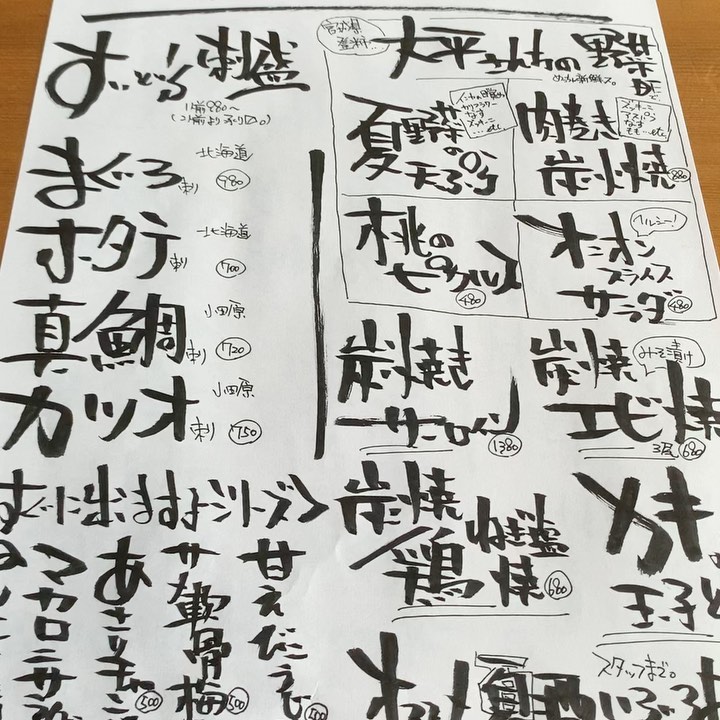 刺盛
1人前880〜
(2人前より承り〼。)
まぐろ刺
北海道
980
ホタテ刺
北海道
700
真鯛刺
小田原
720
カツオ刺
小田原
750
大平さんちの野菜
めっちゃ新鮮っス。
夏野菜の天ぷら
なす
ズッキーニ
…etc
肉巻き炭火焼
ズッキーニ
アスパラ
なす
もも…etc
880
桃のピクルス
480
オニオン
スライス
サラダ
480
ヘルシー!
炭火焼き
サーロイン
1380
炭火焼
エビ焼
みそ漬け
3尾 680
炭火焼
鶏ねぎ塩焼
680
カキ
玉子と
すぐに出ますよシリーズ
甘えびこうじ
500
サメ軟骨梅
500
あさり
500
マカロニサラダ
スタッフまで。